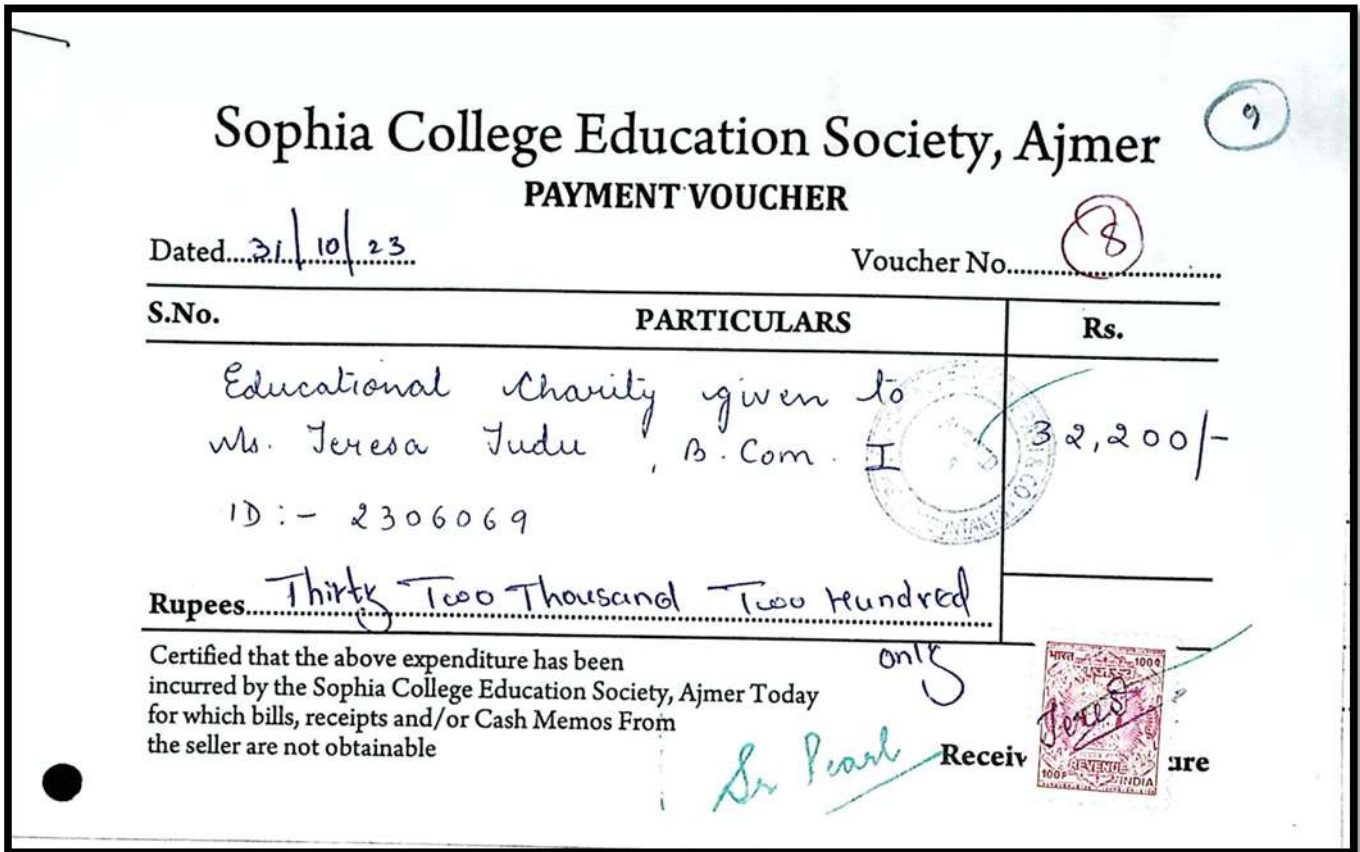 9
Sophia College Education Society, Ajmer
PAYMENT VOUCHER
Dated....31/10/23
Voucher No....8
S.No. PARTICULARS Rs.
Educational Charity given to
Ms. Teresa Tudu, B.Com. I 32,200/-
ID :- 2306069
Rupees....Thirty Two Thousand Two Hundred
only
Certified that the above expenditure has been
incurred by the Sophia College Education Society, Ajmer Today
for which bills, receipts and/or Cash Memos From
the seller are not obtainable
Sr Pearl
Receiv ure
भारत 100
REVENUE
100 INDIA